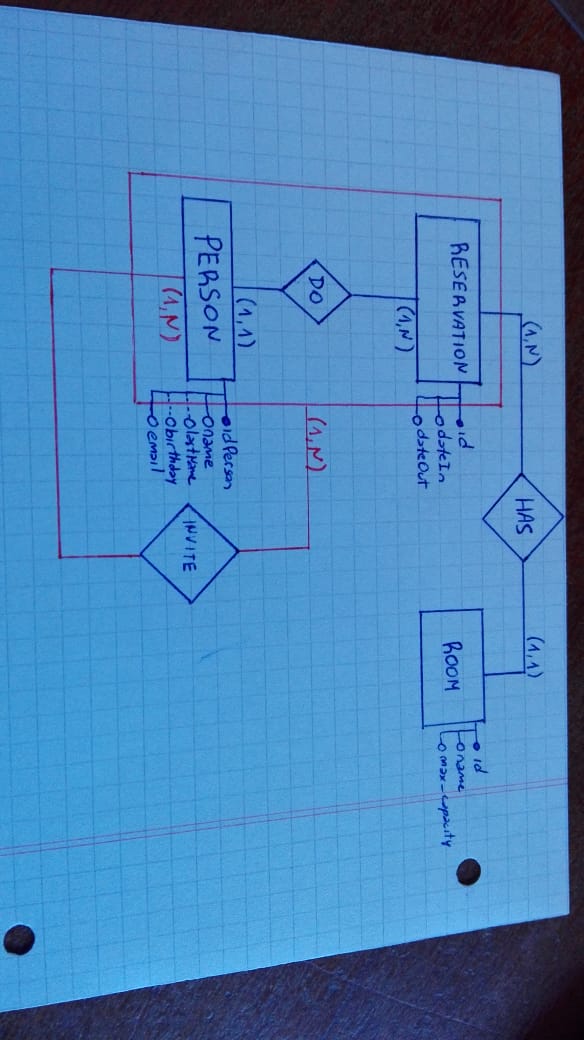 (1,N)
HAS
(1,1)
RESERVATION
id
dateIn
dateOut
ROOM
id
name
max-capacity
(1,N)
DO
(1,N)
(1,1)
PERSON
idPerson
name
lastName
birthday
email
INVITE
(1,N)